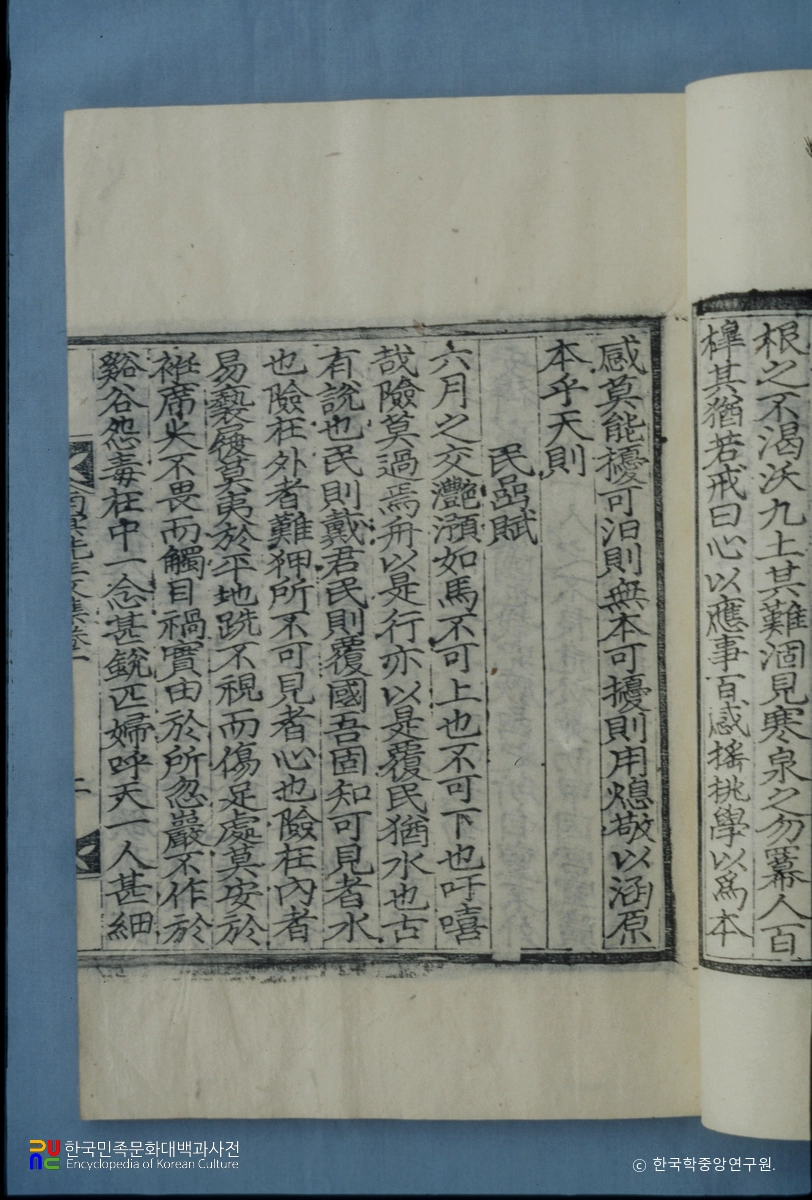 根之不渴沃九土其難涸見寒泉之勿羃人百
橰其猶若戒曰心以應事百感搖挑學以爲本
感莫能擾可汩則無本可擾則用熄敬以涵原
本乎天則
民嵒賦
六月之交灔澦如馬不可上也不可下也吁嘻
哉險莫過焉舟以是行亦以是覆民猶水也古
有說也民則戴君民則覆國吾固知可見者水
也險在外者難狎所不可見者心也險在內者
易褻履莫夷於平地跣不視而傷足處莫安於
袵席尖不畏而觸目禍實由於所忽巖不作於
谿谷怨毒在中一念甚銳匹婦呼天一人甚細
南冥先生文集卷一
二
한국민족문화대백과사전
Encyclopedia of Korean Culture
© 한국학중앙연구원.